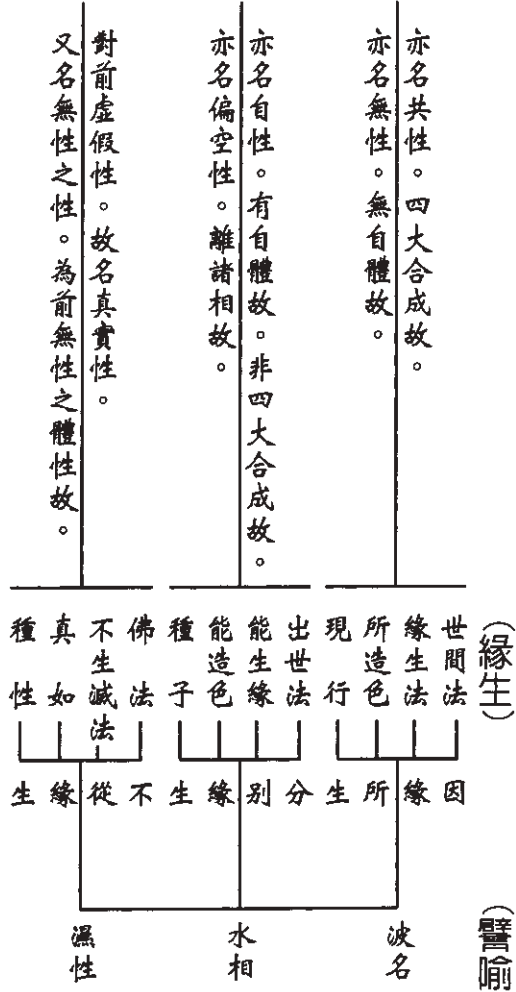 亦名共性。四大合成故。
亦名無性。無自體故。
亦名自性。有自體故。非四大合成故。
亦名偏空性。離諸相故。
對前虛假性。故名真實性。
又名無性之性。為前無性之體性故。
（緣生）
世間法
緣生法
所造色
現行
因緣所生
出世法
能生緣
能造色
種子
分別緣生
佛法
不生滅法
真如
種性
不從緣生
（譬喻）
波名
水相
濕性